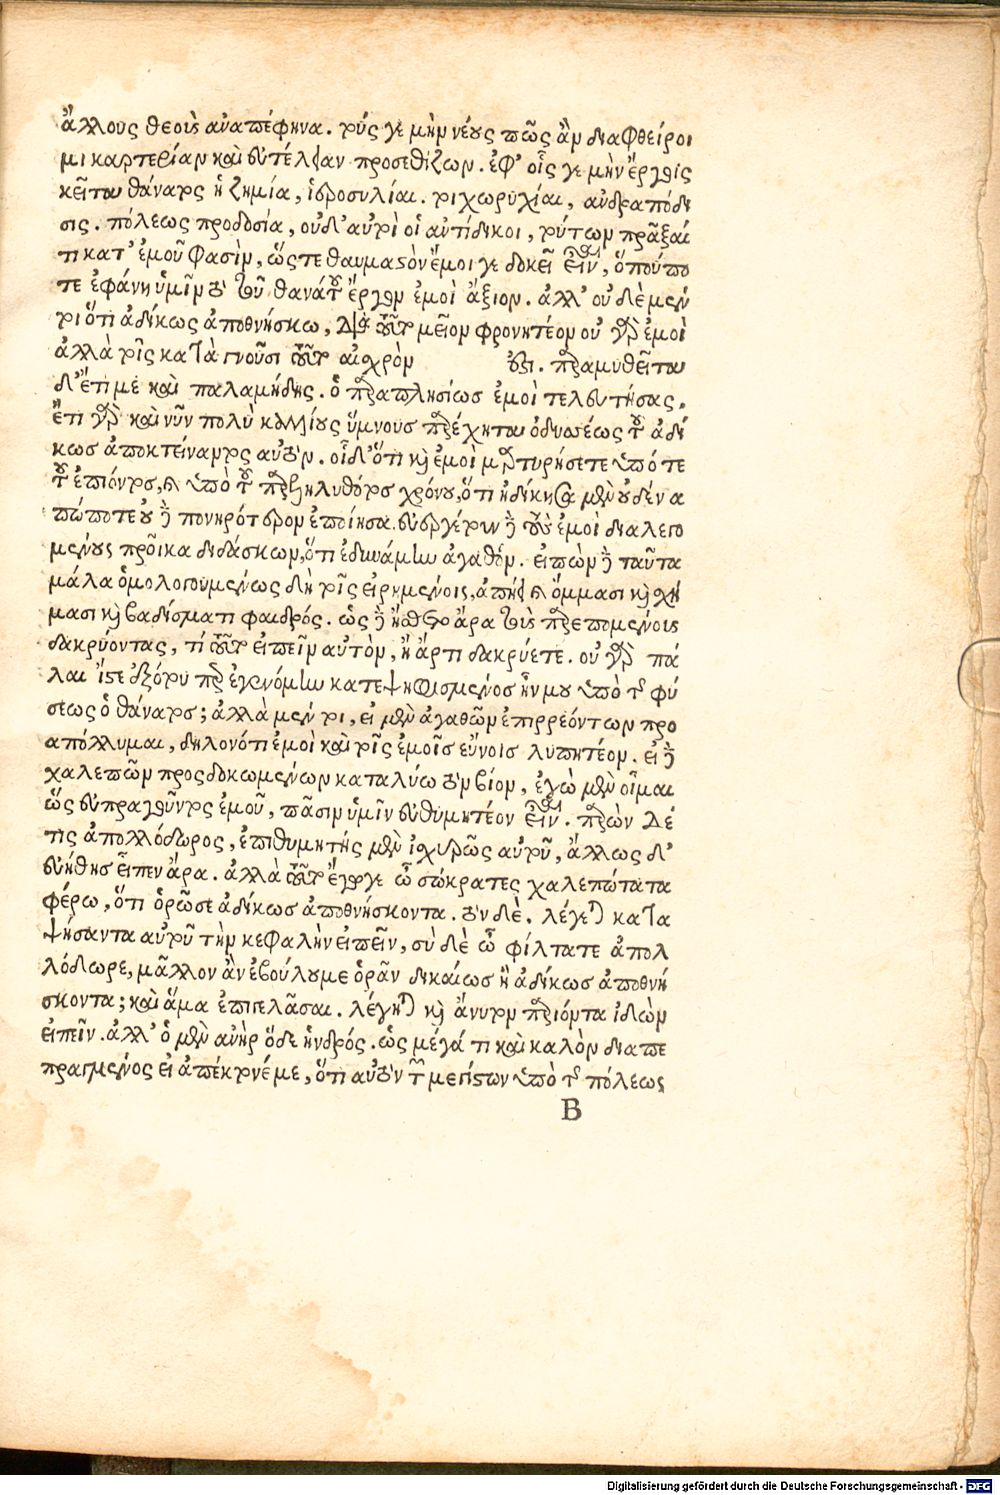 ἄλλους θεοὺς ἀναπέφηνα. τούς γε μὴν νέους πῶς ἂν διαφθείροι
μι καρτερίαν καὶ εὐτέλειαν προσεθίζων. ἐφ' οἷς γε μὴν ἔργοις
κεῖται θάνατος ἡ ζημία, ἱεροσυλίαι. τοιχωρυχίαι, ἀνδραπόδι
σις. πόλεως προδοσία, οὐδ' αὐτοὶ οἱ ἀντίδικοι, τούτων πρᾶξαί
τι κατ' ἐμοῦ φασὶν, ὥςτε θαυμαστὸν ἔμοι γε δοκεῖ εἶναι, ὅπού πο
τε ἐφάνη ὑμῖν τὸ τοῦ θανάτου ἔργον ἐμοὶ ἄξιον. ἀλλ' οὐδὲ μέν
τοι ὅτι ἀδίκως ἀποθνήσκω, διὰ τοῦτο μεῖον φρονητέον οὐ γὰρ ἐμοὶ
ἀλλὰ τοῖς καταγνοῦσι τοῦτο αἰσχρὸν ἐστι. παραμυθεῖται
δ' ἔτι με καὶ παλαμήδης. ὁ παραπλησίως ἐμοὶ τελευτήσας.
ἔτι γὰρ καὶ νῦν πολὺ καλλίους ὕμνους παρέχηται ὀδυσσέως τοῦ ἀδί
κως ἀποκτείναντος αὐτόν. οἶδ' ὅτι καὶ ἐμοὶ μαρτυρήσετε ὑπό τε
τοῦ ἐπιόντος, καὶ ὑπὸ τοῦ παρεληλυθότος χρόνου, ὅτι ἠδίκησα μὲν οὐδένα
πώποτε οὐδὲ πονηρότερον ἐποίησα. εὐεργέτουν δὲ τοὺς ἐμοὶ διαλεγο
μένους προῖκα διδάσκων, ὅτι ἐδυνάμην ἀγαθόν. εἰπὼν δὲ ταῦτα
μάλα ὁμολογουμένως δὴ τοῖς εἰρημένοις, ἀπῄει καὶ ὄμμασι καὶ σχή
μασι καὶ βαδίσματι φαιδρός. ὡς δὲ ᾔσθετο ἄρα τοὺς παρεπομένους
δακρύοντας, τί τοῦτο εἰπεῖν αὐτὸν, ἢ ἄρτι δακρύετε. οὐ γὰρ πά
λαι ἴστε ἐξότου περ ἐγενόμην κατεψηφισμένος ἦν μου ὑπὸ τῆς φύ
σεως ὁ θάνατος; ἀλλὰ μέν τοι, εἰ μὲν ἀγαθῶν ἐπιρρεόντων προ
απόλλυμαι, δηλονότι ἐμοὶ καὶ τοῖς ἐμοῖς εὔνοις λυπητέον. εἰ δὲ
χαλεπῶν προςδοκωμένων καταλύω τὸν βίον, ἐγὼ μὲν οἶμαι
ὡς εὐπραγοῦντος ἐμοῦ, πᾶσιν ὑμῖν εὐθυμητέον εἶναι. παρὼν δέ
τις ἀπολλόδωρος, ἐπιθυμητής μὲν ἰσχυρῶς αὐτοῦ, ἄλλως δ'
εὐήθης εἶπεν ἄρα. ἀλλὰ τοῦτο ἔγωγε ὦ σώκρατες χαλεπώτατα
φέρω, ὅτι ὁρῶ σε ἀδίκως ἀποθνήσκοντα. τὸν δὲ. λέγεται κατα
ψήσαντα αὐτοῦ τὴν κεφαλὴν εἰπεῖν, σὺ δὲ ὦ φίλτατε ἀπολ
λόδωρε, μᾶλλον ἂν ἐβούλου με ὁρᾶν δικαίως ἢ ἀδίκως ἀποθνή
σκοντα; καὶ ἅμα ἐπιγελᾶσαι. λέγηται καὶ ἄνυτον παριόντα ἰδὼν
εἰπεῖν. ἀλλ' ὁ μὲν ἀνὴρ ὅδε ἡνδρός. ὡς μέγά τι καὶ καλὸν διαπε
πραγμένος εἰ ἀπέκρνέ με, ὅτι αὐτὸν τῶν μεγίστων ὑπὸ τῆς πόλεως
B
Digitalisierung gefördert durch die Deutsche Forschungsgemeinschaft - DFG